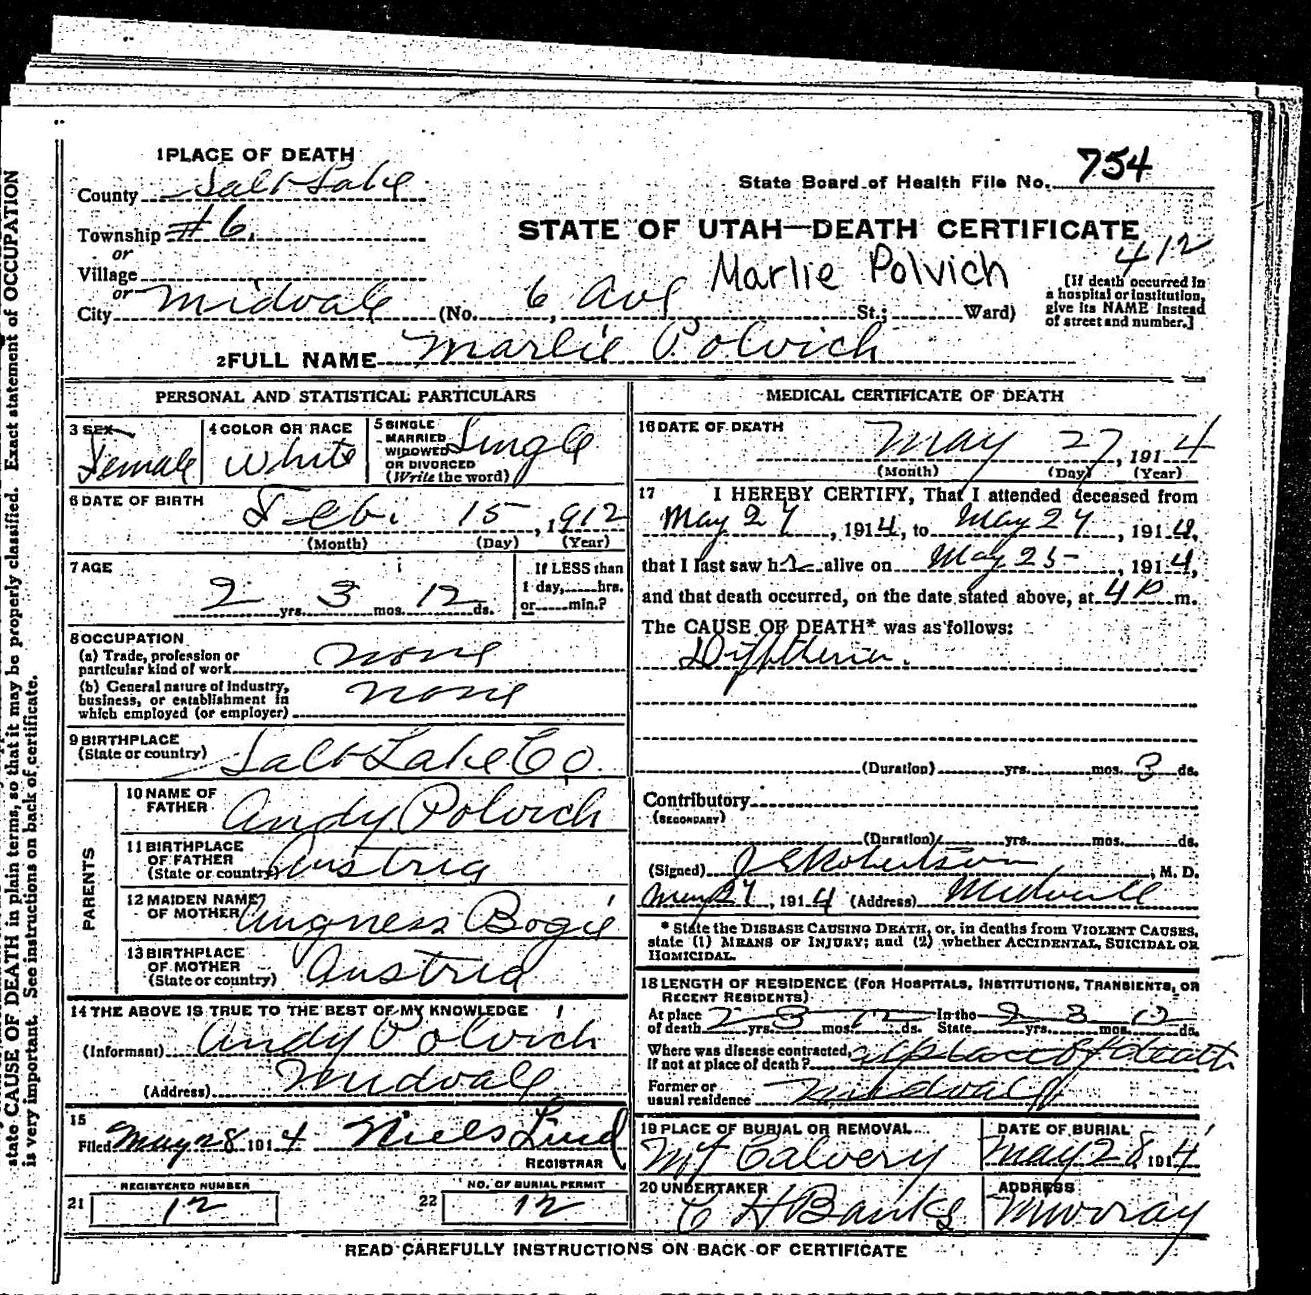 state CAUSE OF DEATH in plain terms, so that it may be properly classified. Exact statement of OCCUPATION
is very important. See instructions on back of certificate.
1 PLACE OF DEATH
County Salt Lake
Township #6.
or
Village
or
City Midvale (No. 6, Ave St.; Ward)
State Board of Health File No. 754
STATE OF UTAH—DEATH CERTIFICATE
412
Marlie Polvich
[If death occurred in
a hospital or institution,
give its NAME instead
of street and number.]
2 FULL NAME Marlie Polvich
PERSONAL AND STATISTICAL PARTICULARS
3 SEX
Female
4 COLOR OR RACE
White
5 SINGLE
MARRIED
WIDOWED
OR DIVORCED
(Write the word)
Single
6 DATE OF BIRTH
Feb. 15, 1912
(Month) (Day) (Year)
7 AGE
2 yrs. 3 mos. 12 ds.
If LESS than
1 day, hrs.
or min.?
8 OCCUPATION
(a) Trade, profession or
particular kind of work none
(b) General nature of industry,
business, or establishment in
which employed (or employer) none
9 BIRTHPLACE
(State or country) Salt Lake Co.
PARENTS
10 NAME OF
FATHER Andy Polvich
11 BIRTHPLACE
OF FATHER
(State or country) Austria
12 MAIDEN NAME
OF MOTHER Angness Bogie
13 BIRTHPLACE
OF MOTHER
(State or country) Austria
14 THE ABOVE IS TRUE TO THE BEST OF MY KNOWLEDGE
(Informant) Andy Polvich
(Address) Midvale
15
Filed May 28 1914 Niels Lind
REGISTRAR
REGISTERED NUMBER
21 12
NO. OF BURIAL PERMIT
22 12
MEDICAL CERTIFICATE OF DEATH
16 DATE OF DEATH
May 27, 1914
(Month) (Day) (Year)
17 I HEREBY CERTIFY, That I attended deceased from
May 27, 1914, to May 27, 1914,
that I last saw h alive on May 25, 1914,
and that death occurred, on the date stated above, at 4 P m.
The CAUSE OF DEATH* was as follows:
Diphtheria.
(Duration) yrs. mos. 3 ds.
Contributory
(SECONDARY)
(Duration) yrs. mos. ds.
(Signed) Robertson, M. D.
May 27, 1914 (Address) Midvale
* State the DISEASE CAUSING DEATH, or, in deaths from VIOLENT CAUSES,
state (1) MEANS OF INJURY; and (2) whether ACCIDENTAL, SUICIDAL OR
HOMICIDAL.
18 LENGTH OF RESIDENCE (FOR HOSPITALS, INSTITUTIONS, TRANSIENTS, OR
RECENT RESIDENTS)
At place
of death 2 yrs. 3 mos. 12 ds. In the
State 2 yrs. 3 mos. 12 ds.
Where was disease contracted,
if not at place of death? at place of death
Former or
usual residence Midvale
19 PLACE OF BURIAL OR REMOVAL
Mt Calvery
DATE OF BURIAL
May 28 1914
20 UNDERTAKER
C H Banks
ADDRESS
Murray
READ CAREFULLY INSTRUCTIONS ON BACK OF CERTIFICATE